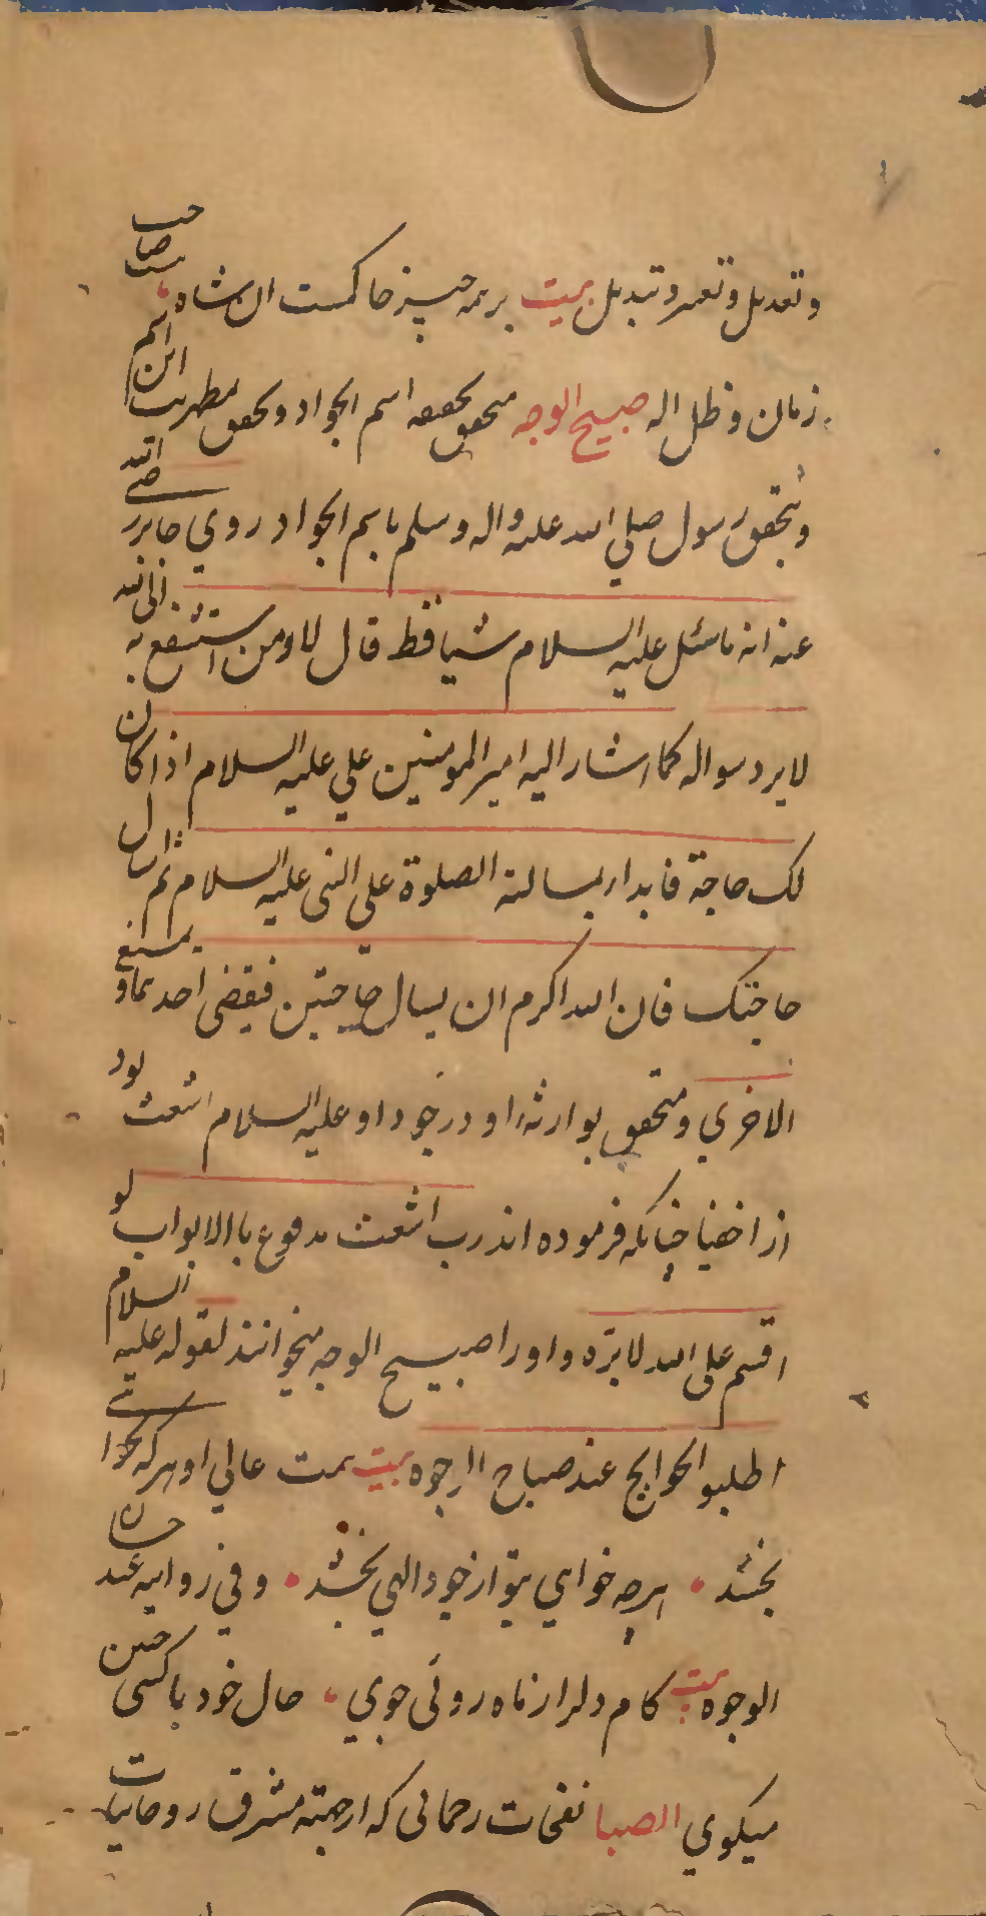 و تعدیل و تغییر و تبدیل بیت بر همه چیز حاکمست ان شاه صاحب
زمان و ظل اله صبیح الوجه متحقق بحقیقه اسم الجواد و تحقق مطهریت این اسم
و بتحقق رسول صلی الله علیه واله وسلم باسم الجواد روی جابر رضی الله
عنه انه ما سئل علیه السلام شیا قط قال لا و من استشفع به الی الله
لا یرد سواله کما اشار الیه امیر المومنین علی علیه السلام اذا کان
لک حاجة فابدا بمسالته الصلوة علی النبی علیه السلام ثم اسال
حاجتک فان الله اکرم ان یسال حاجتین فیقضی احدیهما و یمنع
الاخری و متحقق بوارثه او در جود او علیه السلام اشعث بود
از اخفیا چنانکه فرموده اند رب اشعث مدفوع باالابواب لو
اقسم علی الله لابره و اورا صبیح الوجه میخوانند لقوله علیه السلام
اطلبو الحوایج عند صباح الوجوه بیت همت عالی او هرکه بخواهی
بخشد هرچه خواهی بتو از جود الهی بخشد و فی روایه عند حسان
الوجوه بیت کام دلرا ز ماه روئی جوی حال خود با کسی چنین
میکوی الصبا نفحات رحمانی که از جهته مشرق روحانیات